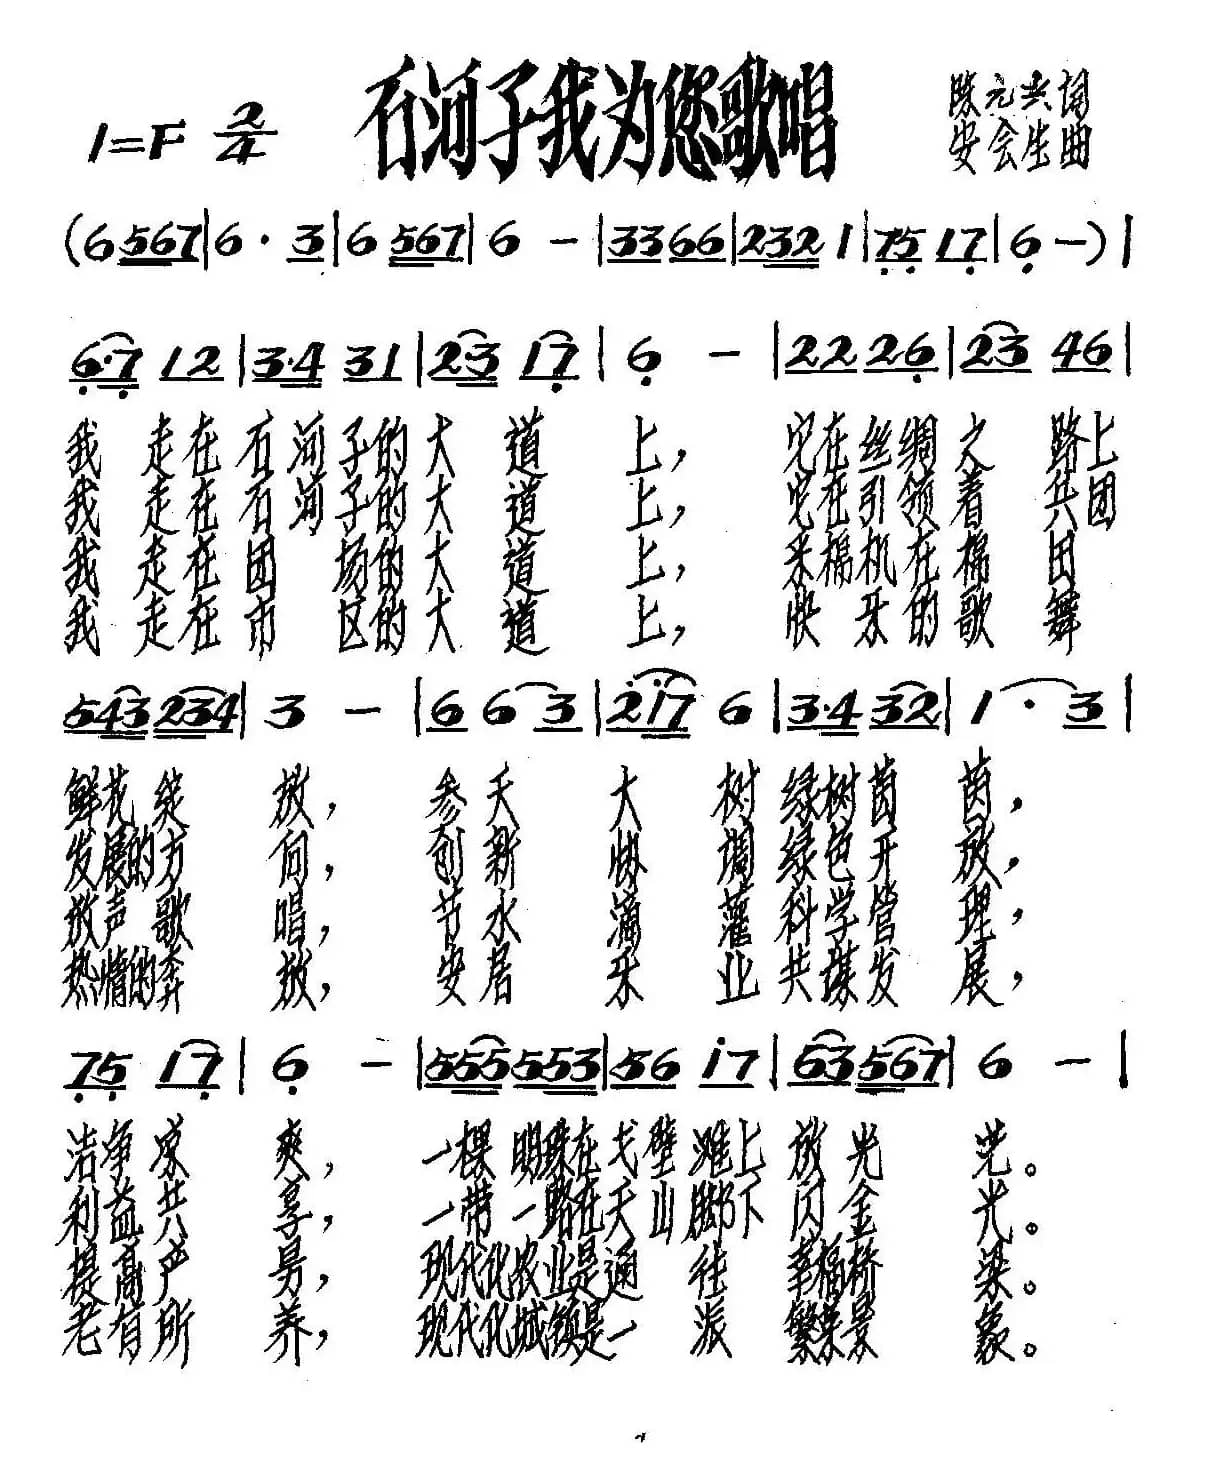 石河子我为您歌唱
陈元兴词
1=F 2/4
安会生曲
(6 567|6· 3|6 567|6 -|33 66|232 1|75 17|6 -)|
6·7 12|3·4 31|2·3 17|6 -|22 26|23 46|
我 走在石河子的大 道 上， 它在丝绸之 路上
我 走在石河子的大 道 上， 它在引领着 兵团
我 走在团 场的大 道 上， 采棉机在棉 田
我 走在市 区的大 道 上， 快 乐的歌 舞
543 234|3 -|6 6 3|2i7 6|3·4 32|1· 3|
鲜花 绽 放， 参 天 大 树 绿树茵 茵，
发展的方 向， 创 新 协 调 绿色开 放，
放声 歌 唱， 节 水 滴 灌 科学管 理，
热情的奔 放， 安 居 乐 业 共谋发 展，
75 17|6 -|555 553|56 i7|63 567|6 -|
洁净 凉 爽， 一棵 明珠在戈壁 滩上 放 光 芒。
利益 共 享， 一带 一路在天山脚下 闪 金 光。
提高 产 量， 现代化农业是通 往 幸福桥 梁。
老有 所 养， 现代化城镇是一 派 繁荣景 象。